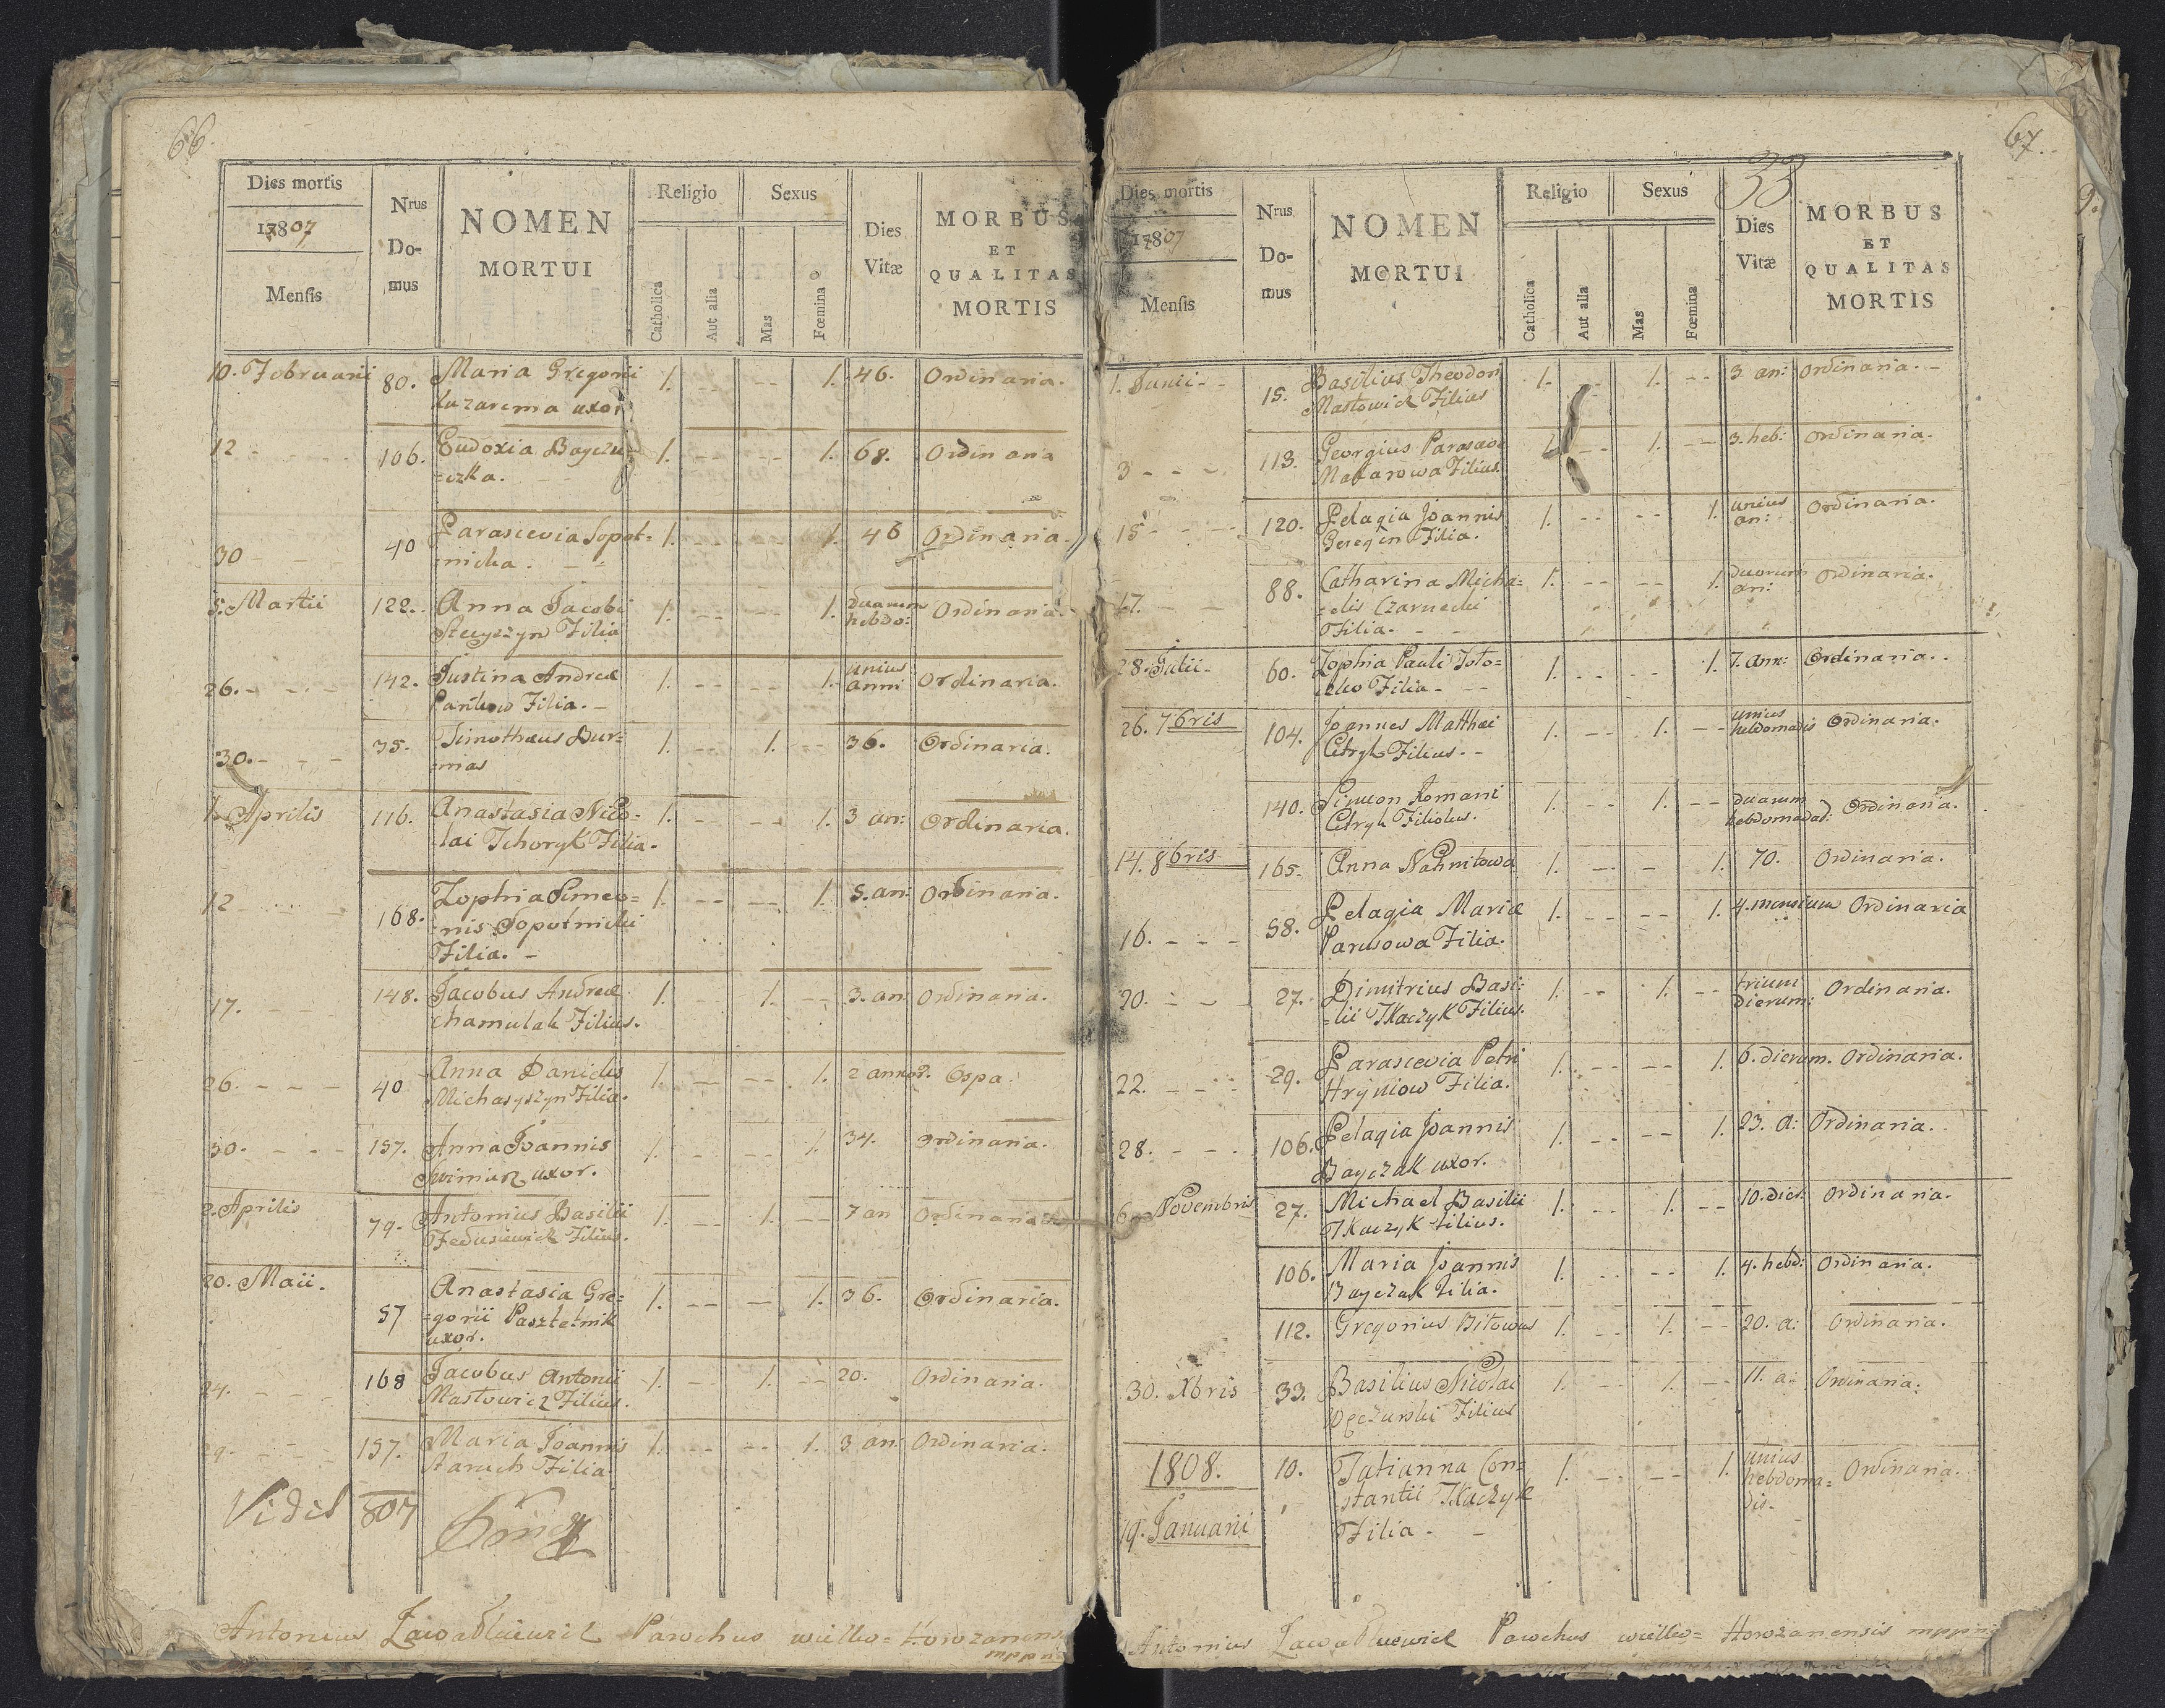 66.
Dies mortis
Nrus Domus
NOMEN MORTUI
Religio
Sexus
Dies Vitæ
MORBUS ET QUALITAS MORTIS
1807
Mensis
Catholica
Aut alia
Mas
Fœmina
10. Februarii 80. Maria Gregorii 1. -- -- 1. 46. Ordinaria.
uxor
12 - - - 106. Eudoxia Bayczu= 1. -- -- 1. 68. Ordinaria
=czka.
30 - - - 40 Parascevia Sopot= 1. -- -- 1. 46 Ordinaria.
=nicka.
5. Martii 122. Anna Jacobi 1. -- -- 1. duarum hebdo: Ordinaria.
Steczyzyn Filia
26. - - - 142. Justina Andreæ 1. -- -- 1. unius anni Ordinaria.
Pankow Filia. -
30. - - - 35. Timothæus Bur= 1. -- 1. -- 36. Ordinaria.
=mas
1. Aprilis 116. Anastasia Nico= 1. -- -- 1. 3 an: Ordinaria.
-lai Tchoryk Filia.
12 - - - 168. Zophia Simeo= 1. -- -- 1. 5. an: Ordinaria.
=nis Sopotnicki
Filia. -
17. - - - 148. Jacobus Andreæ 1. 1. -- 3. an: Ordinaria.
Chamulak Filius.
26. - - - 40 Anna Danielis 1. -- -- 1. 2 annor. Ospa.
Michasyszyn Filia.
30. - - - 157. Anna Joannis 1. - -- 1. 34. Ordinaria.
uxor.
2. Aprilis 79. Antonius Basilii 1. -- 1. -- 7 an Ordinaria
Fedusiewicz Filius.
20. Maii. 57 Anastasia Gre= 1. -- -- 1. 36. Ordinaria.
=gorii Pasztetnik
uxor.
24. - - - 168 Jacobus Antonii 1. -- 1. -- 20. Ordinaria.
Mastowicz Filius.
29. - - - 157. Maria Joannis 1. -- -- 1. 3 an: Ordinaria.
Staruch Filia
Vidit 807
Antonius Parochus
mppria
67.
33
Dies mortis
Nrus Domus
NOMEN MORTUI
Religio
Sexus
Dies Vitæ
MORBUS ET QUALITAS MORTIS
1807
Mensis
Catholica
Aut alia
Mas
Fœmina
1. Junii - - 15. Basilius Theodori 1. -- 1. -- 3 an: Ordinaria. -
Mastowicz Filius
3 - - - 113. Georgius Parascev 1. -- 1. -- 3. heb: Ordinaria.
Makarowa Filius.
15 - - - 120. Pelagia Joannis 1. -- -- 1. unius an: Ordinaria.
Geregin Filia.
17. - - 88. Catharina Micha= 1. -- -- 1. duorum an: Ordinaria.
=elis Czarnecki
Filia. - -
28. Julii - 60. Zophia Pauli 1. -- -- 1. 7. ann: Ordinaria..
Filia - --
26. 7bris 104. Joannes Matthæi 1. -- 1. -- unius hebdomadis Ordinaria.
Cetryk Filius. --
140. Simeon Romani 1. -- 1. -- duarum hebdomadar: Ordinaria.
Cetryk Filiolus.
14. 8bris 165. Anna Nahnitowa 1. -- - 1. 70. Ordinaria.
16. - - - 58. Pelagia Mariæ 1. -- -- 1. 4. mensium Ordinaria
Parusowa Filia.
20. - - - 27. Dimitrius Basi= 1. -- 1. -- trium Dierum: Ordinaria.
=lii Tkaczyk Filius.
22. - - - 29. Parascevia Petri 1. -- -- 1. 6. dierum. Ordinaria.
Hryniow Filia.
28. - - - 106. Pelagia Joannis 1. -- -- 1. 23. a: Ordinaria.
Bayczak uxor.
6. Novembris 27. Michael Basilii 1. -- 1. -- 10. dier: Ordinaria.
Tkaczyk filius.
106. Maria Joannis 1. -- -- 1. 4. hebd: Ordinaria.
Bayczak Filia.
112. Gregorius Bitowus 1. -- 1. -- 20. a: Ordinaria.
30. Xbris 33. Basilius Nicolai 1. -- 1. -- 11. a: Ordinaria.
Filius
1808.
19. Januarii 10. Tatianna Con= 1. -- -- 1. unius hebdoma=dis- Ordinaria.
=stantii Tkaczyk
Filia - -
Antonius Parochus